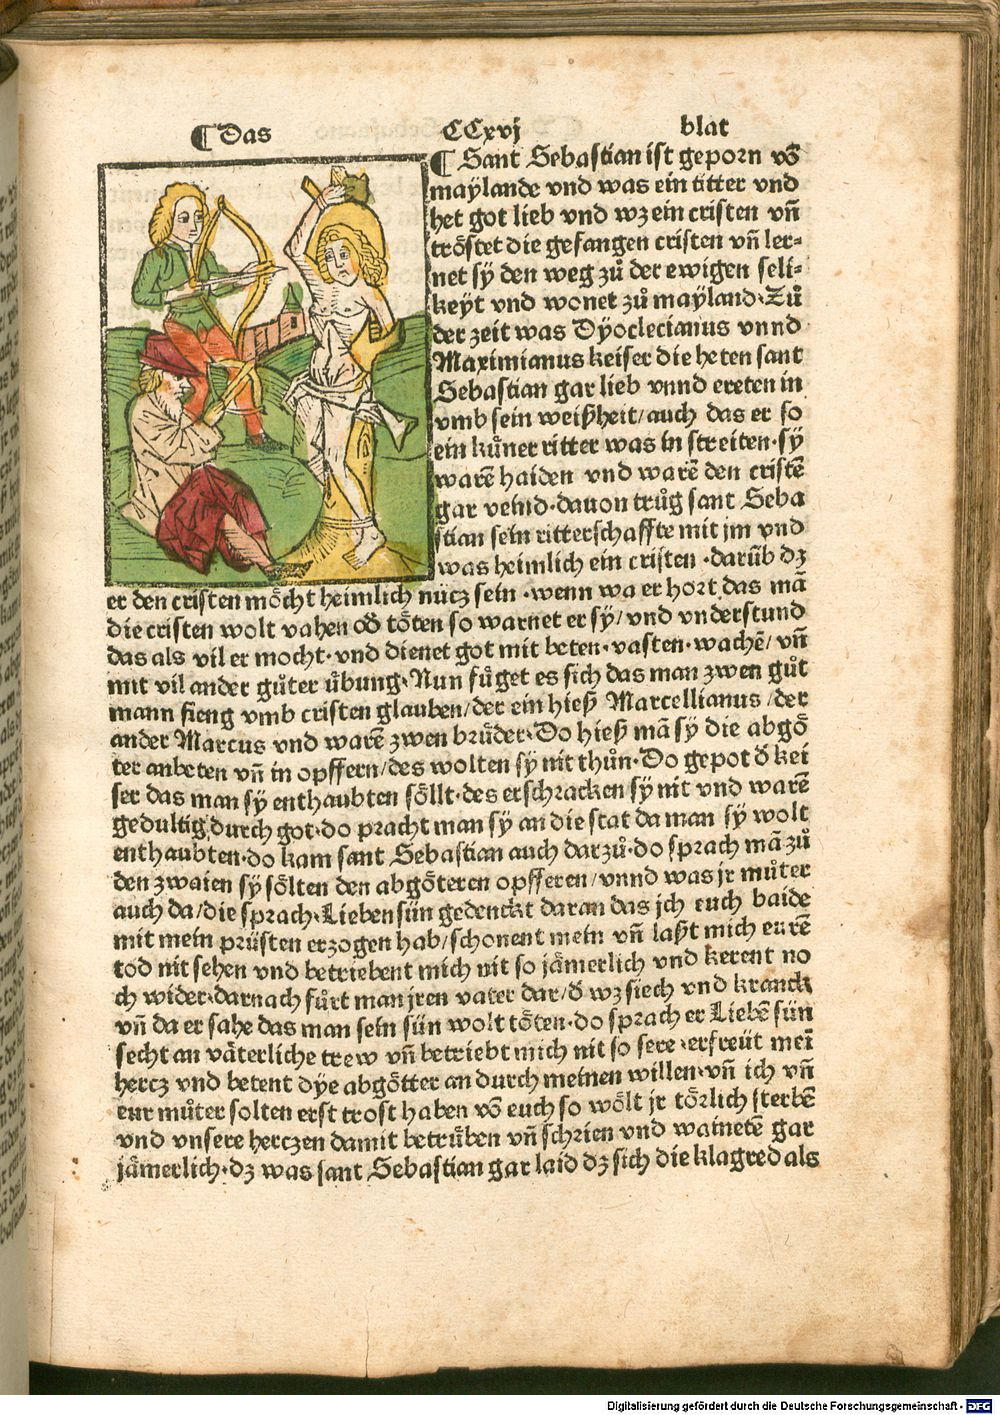 ¶ Das CCxvj blat
¶ Sant Sebastian ist geporn võ
maylande vnd was ein titter vnd
het got lieb vnd wz ein cristen vñ
tröstet die gefangen cristen vñ ler⸗
net sÿ den weg zů der ewigen seli⸗
keÿt vnd wonet zů maÿland. Zů
der zeit was Dÿoclecianus vnnd
Maximianus keiser die heten sant
Sebastian gar lieb vnnd ereten in
vmb sein weißheit/ auch das er so
ein kůner ritter was in streiten. sÿ
warẽ haiden vnd warẽ den cristẽ
gar veind. dauon trůg sant Seba
stian sein ritterschaffte mit jm vnd
was heimlich ein cristen. darũb dz
er den cristen möcht heimlich nücz sein. wenn wa er hort das mã
die cristen wolt vahen oð töten so warnet er sÿ/ vnd vnderstund
das als vil er mocht. vnd dienet got mit beten. vasten. wachẽ/ vñ
mit vil ander gůter ůbung. Nun fůget es sich das man zwen gůt
mann fieng vmb cristen glauben/ der ein hieß Marcellianus/ der
ander Marcus vnd warẽ zwen brůder. Do hieß mã sÿ die abgö
ter anbeten vñ in opffern/ des wolten sÿ nit thůn. Do gepot ð kei
ser das man sÿ enthaubten söllt. des erschracken sÿ nit vnd warẽ
gedultig durch got. do pracht man sÿ an die stat da man sÿ wolt
enthaubten. do kam sant Sebastian auch darzů. do sprach mã zů
den zwaien sÿ sölten den abgöteren opfferen/ vnnd was jr můter
auch da/ die sprach. Lieben sün gedenckt daran das jch euch baide
mit mein prüsten erzogen hab/ schonent mein vñ laßt mich eurẽ
tod nit sehen vnd betriebent mich nit so jämerlich vnd kerent no
ch wider. darnach fůrt man jren vater dar/ ð wz siech vnd kranck
vñ da er sahe das man sein sün wolt töten. do sprach er Liebẽ sün
secht an väterliche trew vñ betriebt mich nit so sere. erfreüt mei
hercz vnd betent dÿe abgötter an durch meinen willen. vñ ich vñ
eur můter solten erst trost haben võ euch so wölt jr törlich sterbẽ
vnd vnsere herczen damit betrůben vñ schrien vnd wainetẽ gar
jämerlich. dz was sant Sebastian gar laid dz sich die klagred als
Digitalisierung gefördert durch die Deutsche Forschungsgemeinschaft - DFG